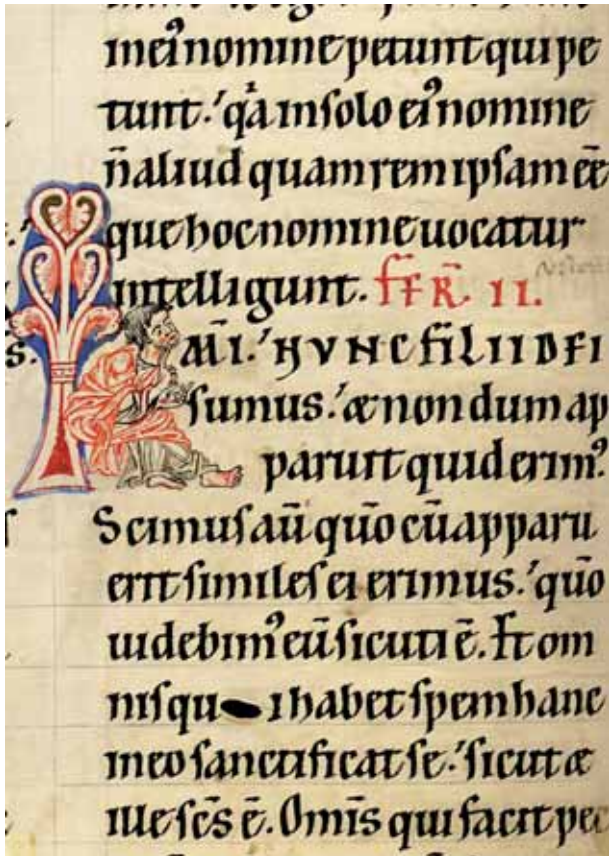 in eiꝰ nomine petunt qui pe
tunt. qͣ in ſolo eiꝰ nomine
n̄ aliud quam rem ipſam ēē
que hoc nomine uocatur
intelligunt. FŔ. II.
KAR̄MI. NVNC FILII DEI
ſumus. & non dum ap
paruit quid erimꝰ
Scimuſ aū quō cū appar u
erit ſimileſ ei erimus. quō
uidebimꝰ eū ſicuti ē. Et om
niſ qu i habet ſpem hanc
in eo ſanctificat ſe. ſicut &
ille ſc̄s ē. Omīs qui facit pec